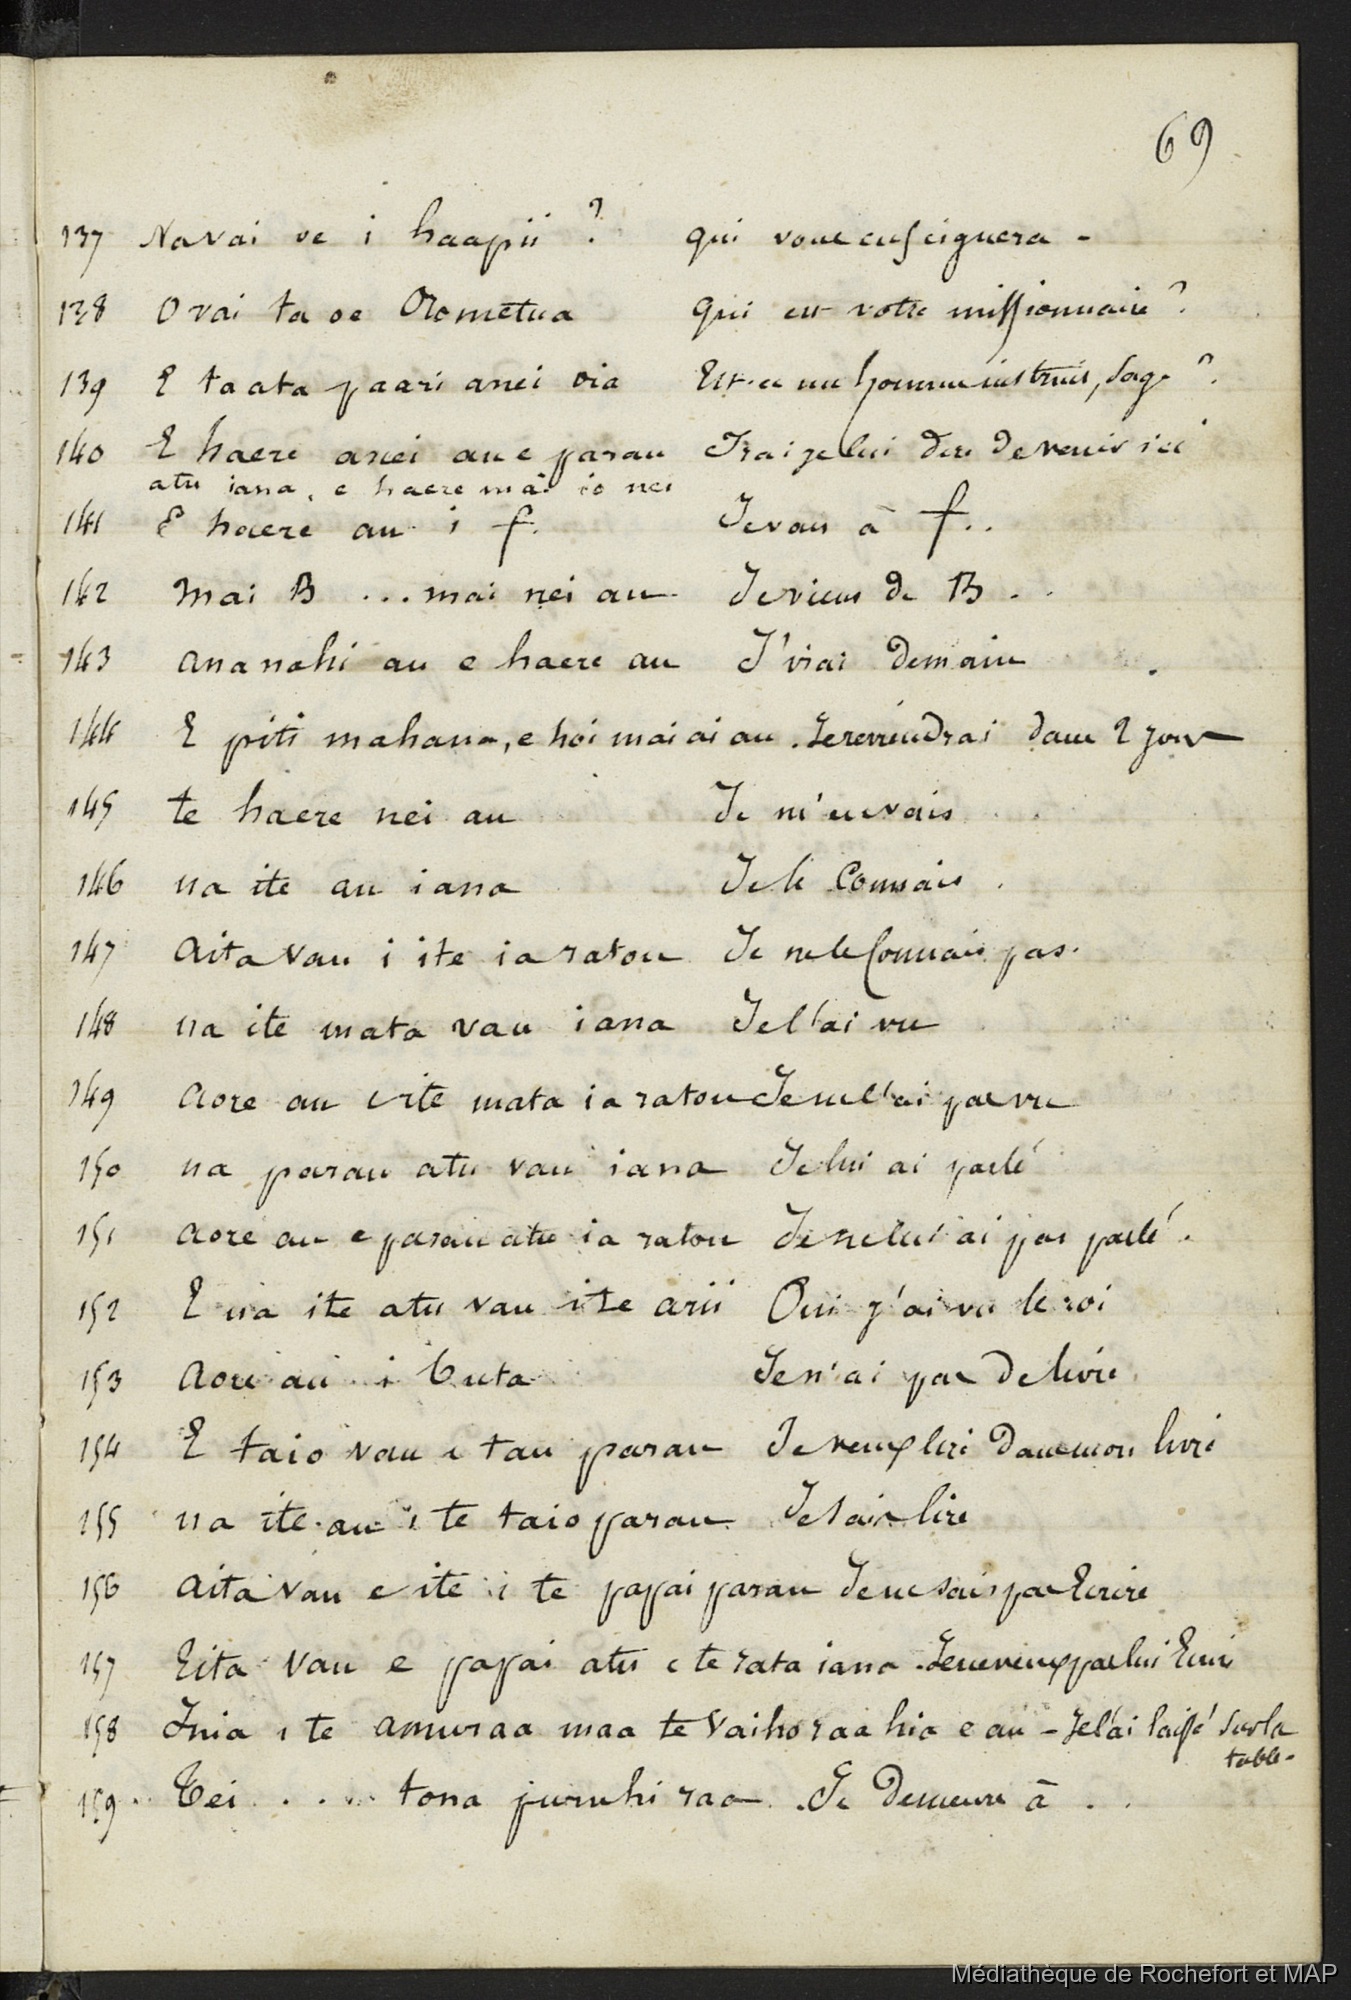 69
137 Navai oe i haapii ? qui vous enseignera -
138 O vai ta oe Orometua qui est votre missionnaire ?
139 E taata paari anei oia Est-ce un homme instruit, sage ?
140 E haere anei au e parau Irai je lui dire de venir ici
atu iana, e haere mai io nei
141 E haere au i f. Je vais à f..
142 Mai B ... mai nei au Je viens de B . .
143 ananahi au e haere au J'irai demain .
144 E piti mahana, e hoi mai ai au . Je reviendrai dans 2 jours
145 te haere nei au Je m'en vais
146 ua ite au iana Je le Connais .
147 Aita vau i ite ia ratou Je ne le Connais pas.
148 ua ite mata vau iana Je l'ai vu
149 Aore au e ite mata ia ratou Je ne l'ai pas vu
150 ua parau atu vau iana Je lui ai parlé
151 aore au e parau atu ia ratou Je ne lui ai pas parlé .
152 E ua ite atu vau i te arii Oui j'ai vu le roi
153 Aore au i buta Je n'ai pas de livre
154 E taio vau i tau parau Je veux lire dans mon livre
155 ua ite au i te taio parau Je sais lire
156 Aita vau e ite i te papai parau Je ne sais pas Ecrire
157 Eita vau e papai atu i te rata iana . Je ne veux pas lui Ecrire
158 Inia i te amuraa maa te vaihoraa hia e au - Je l'ai laissé sur la
table -
159 Tei . . . . tona puruhi raa . Je Demeure à . .
Médiathèque de Rochefort et MAP